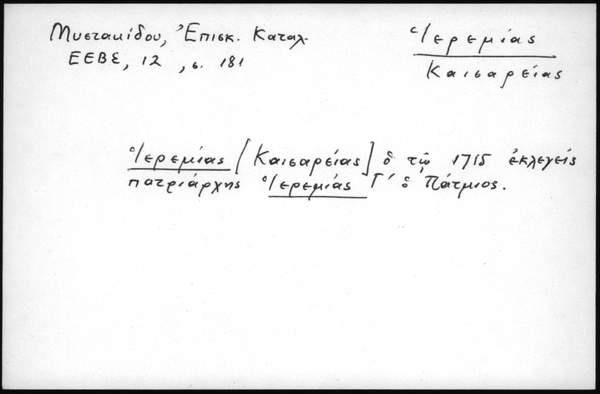 Μυστακίδου, Ἐπισκ. Καταλ.
ΕΕΒΣ, 12, σ. 181
Ἱερεμίας
Καισαρείας
Ἱερεμίας [Καισαρείας] ὁ τῷ 1715 ἐκλεγείς
πατριάρχης Ἱερεμίας Γ΄ ὁ Πάτμιος.